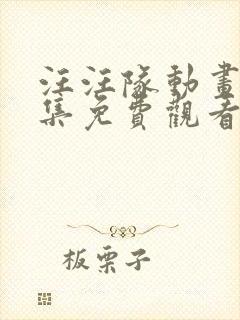 汪汪隊動畫
集免費觀看
板栗子